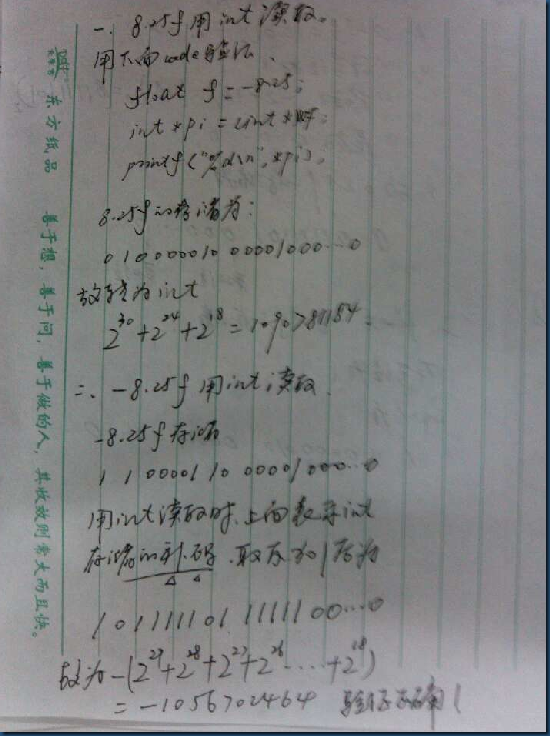 一. 8.25f 用int 读取。
用下面code验证.
float f = -8.25;
int *pi = (int *)&f;
printf("%d\n", *pi);
8.25f的存储为:
0 1 0000010 00001000...0
故转为int
2^30+2^24+2^18=1090781184
二、-8.25f 用int 读取.
-8.25f 存储
1 1 00001 10 00001000...0
用int读取时,上面表示int
存储的补码.取反加1后为
1 01111101 1111100...0
故为-(2^29+2^28+2^27+2^26...+2^18)
=-1056702464 验证正确!
东方纸品 善于想,善于问,善于做的人,其收效则常大而且快。